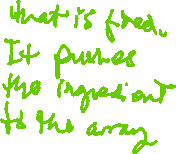 What is fred.
It pushes
the ingredient
to the array